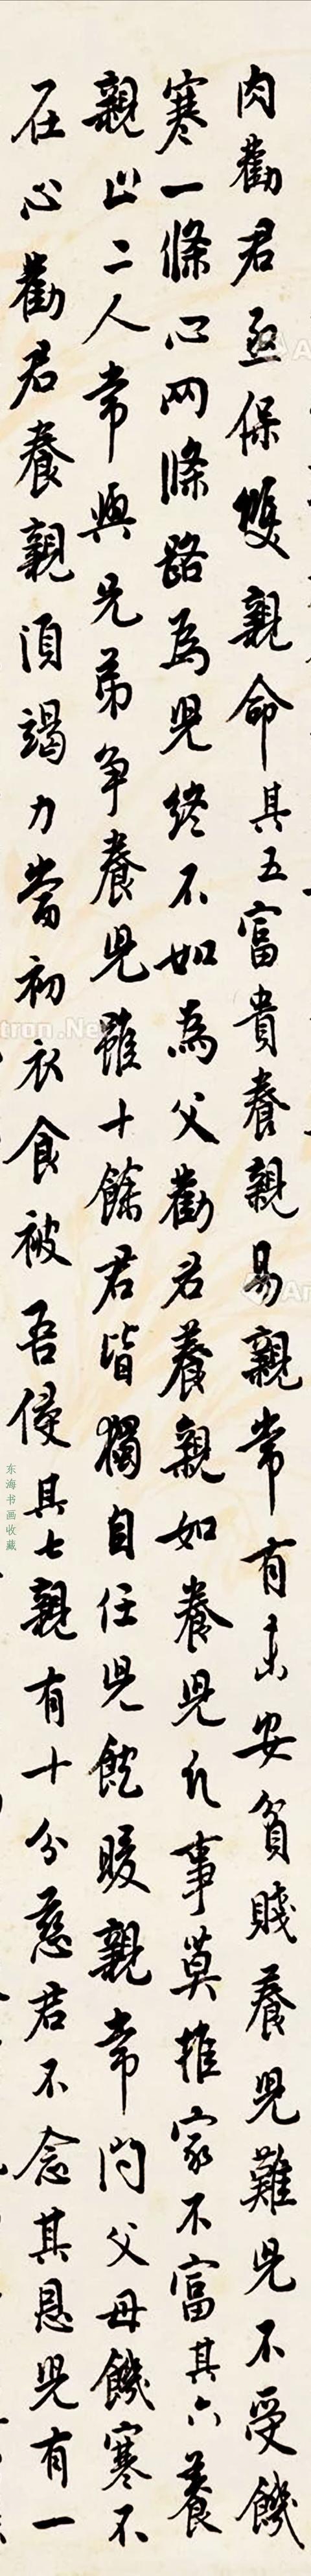 肉勸君亟保雙親命其五富貴養親易親常有未安貧賤養兒難兒不受饑
寒一條心兩條路為兒終不如為父勸君養親如養兒凡事莫推家不富其六養
親止二人常與兄弟爭養兒雖十餘君皆獨自任兒飽暖親常問父母饑寒不
在心勸君養親須竭力當初衣食被吾侵其七親有十分慈君不念其恩兒有一
东海书画收藏
Artron.Net